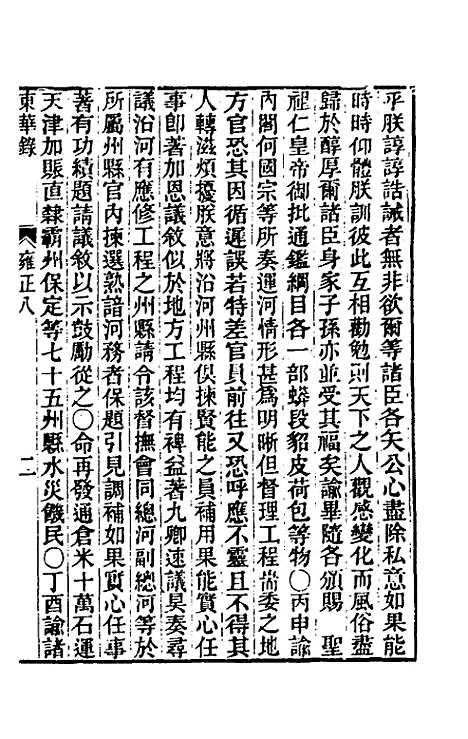 平朕諄諄誥誡者無非欲爾等諸臣各矢公心盡除私意如果能
時時仰體朕訓彼此互相勸勉則天下之人觀感變化而風俗盡
歸於醇厚爾諸臣身家子孫亦並受其福矣諭畢隨各頒賜　聖
祖仁皇帝御批通鑑綱目各一部蟒段貂皮荷包等物○丙申諭
內閣何國宗等所奏運河情形甚爲明晰但督理工程尚委之地
方官恐其因循遲誤若特差官員前往又恐呼應不靈且不得其
人轉滋煩擾朕意將沿河州縣俱揀賢能之員補用果能實心任
事卽著加恩議敘似於地方工程均有裨益著九卿速議具奏尋
議沿河有應修工程之州縣請令該督撫會同總河副總河等於
所屬州縣官內揀選熟諳河務者保題引見調補如果實心任事
著有功績題請議敘以示鼓勵從之○命再發通倉米十萬石運
天津加賑直隸霸州保定等七十五州縣水災饑民○丁酉諭諸
東華錄　雍正八　二